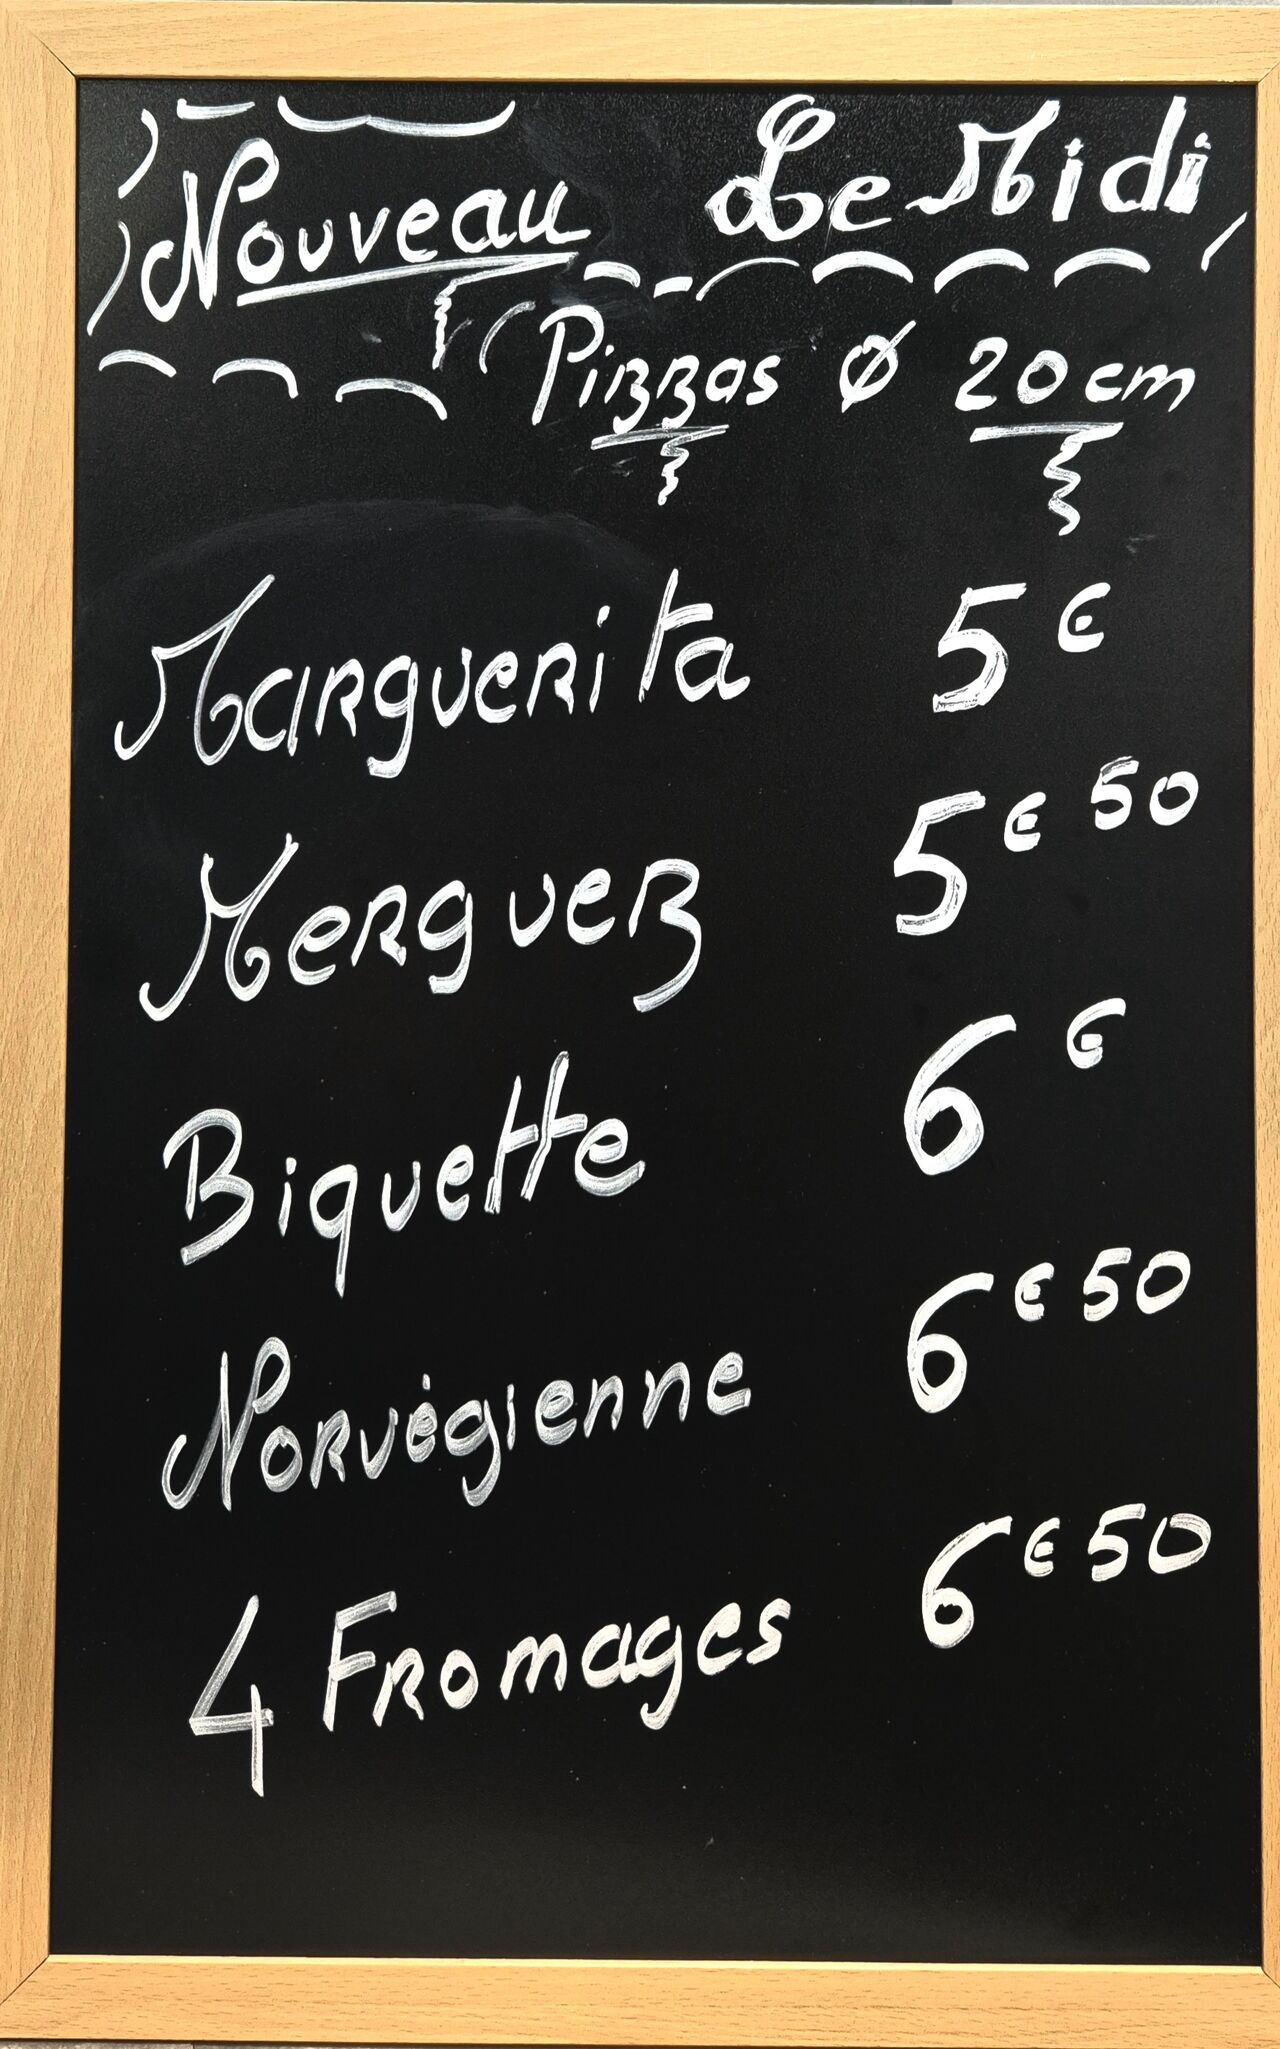 Nouveau Le Midi
Pizzas Ø 20 cm
Marguerita 5€
Merguez 5€50
Biquette 6€
Norvégienne 6€50
4 Fromages 6€50